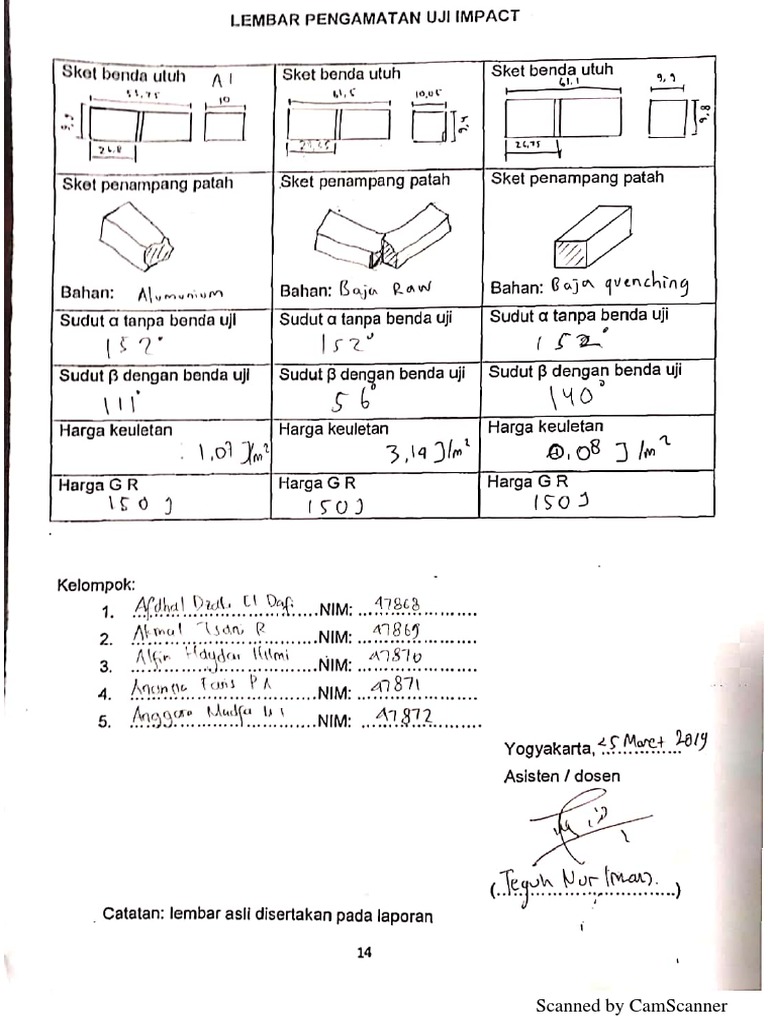 LEMBAR PENGAMATAN UJI IMPACT
Sket benda utuh Al
55,75 10
9,9
26,8
Sket benda utuh
61,5 10,05
Sket benda utuh
61,1 9,9
9,8
26,75
Sket penampang patah
Bahan: Alumunium
Sket penampang patah
Bahan: Baja Raw
Sket penampang patah
Bahan: Baja quenching
Sudut α tanpa benda uji
152°
Sudut α tanpa benda uji
152°
Sudut α tanpa benda uji
152°
Sudut β dengan benda uji
111°
Sudut β dengan benda uji
56°
Sudut β dengan benda uji
140°
Harga keuletan
1,07 J/m²
Harga keuletan
3,14 J/m²
Harga keuletan
0,08 J/m²
Harga G R
150 J
Harga G R
150 J
Harga G R
150 J
Kelompok:
1. Afdhal Dzik El Dafi NIM: 17868
2. Akmal Tsani R NIM: 17869
3. Alfin Haydar Hilmi NIM: 17870
4. Faris PA NIM: 17871
5. Anggoro NIM: 17872
Yogyakarta, 25 Maret 2019
Asisten / dosen
(Teguh Nur Iman)
Catatan: lembar asli disertakan pada laporan
14
Scanned by CamScanner